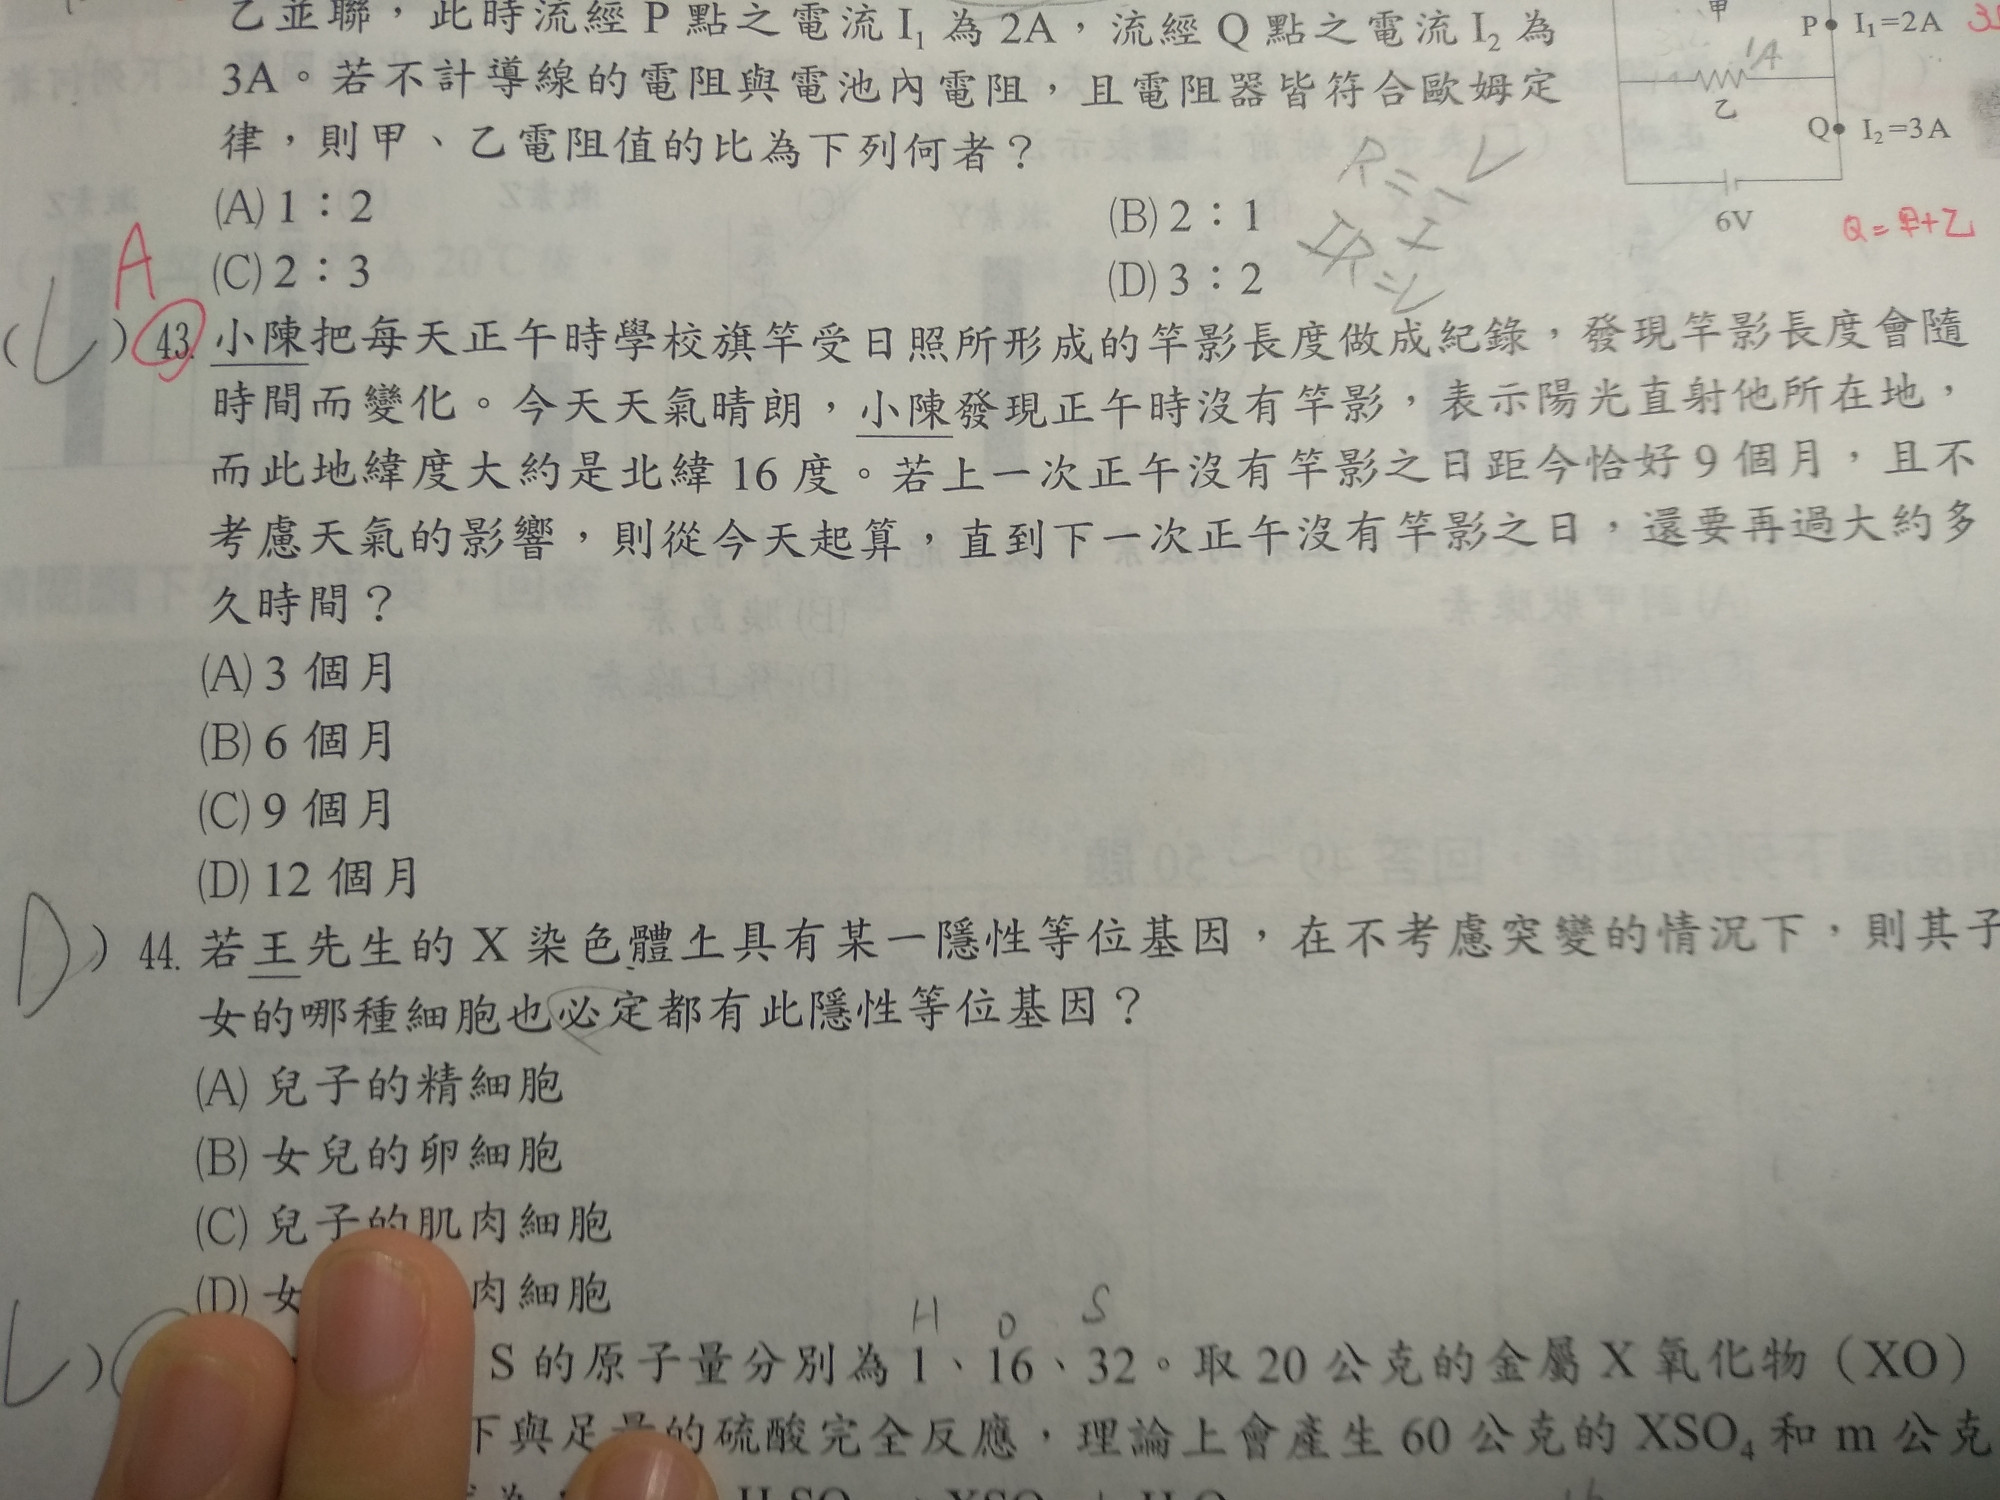 乙並聯，此時流經 P 點之電流 I₁ 為 2A，流經 Q 點之電流 I₂ 為
3A。若不計導線的電阻與電池內電阻，且電阻器皆符合歐姆定
律，則甲、乙電阻值的比為下列何者？
(A) 1：2
(B) 2：1
(C) 2：3
(D) 3：2
甲
P
I₁=2A
1A
乙
Q
I₂=3A
6V
Q=甲+乙
R=V
I
IR=V
A
43. 小陳把每天正午時學校旗竿受日照所形成的竿影長度做成紀錄，發現竿影長度會隨
時間而變化。今天天氣晴朗，小陳發現正午時沒有竿影，表示陽光直射他所在地，
而此地緯度大約是北緯 16 度。若上一次正午沒有竿影之日距今恰好 9 個月，且不
考慮天氣的影響，則從今天起算，直到下一次正午沒有竿影之日，還要再過大約多
久時間？
(A) 3 個月
(B) 6 個月
(C) 9 個月
(D) 12 個月
D
) 44. 若王先生的 X 染色體上具有某一隱性等位基因，在不考慮突變的情況下，則其子
女的哪種細胞也必定都有此隱性等位基因？
(A) 兒子的精細胞
(B) 女兒的卵細胞
(C) 兒子的肌肉細胞
(D) 女 肉細胞
H O S
S 的原子量分別為 1、16、32。取 20 公克的金屬 X 氧化物（XO）
下與足量的硫酸完全反應，理論上會產生 60 公克的 XSO₄ 和 m 公克